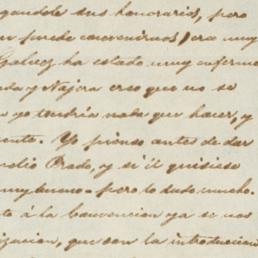 gandole sus honorarios, pero
puede convenirnos) era muy
Galvez ha estado muy enfermo
da y Najera creo que no se
yo tendria nada que hacer, y
ento. Yo pienso antes de dar
olio Prado, y si él quisiese
muy bueno - pero lo dudo mucho.
to á la Convencion ya se nos
izacion, que con la introduccion